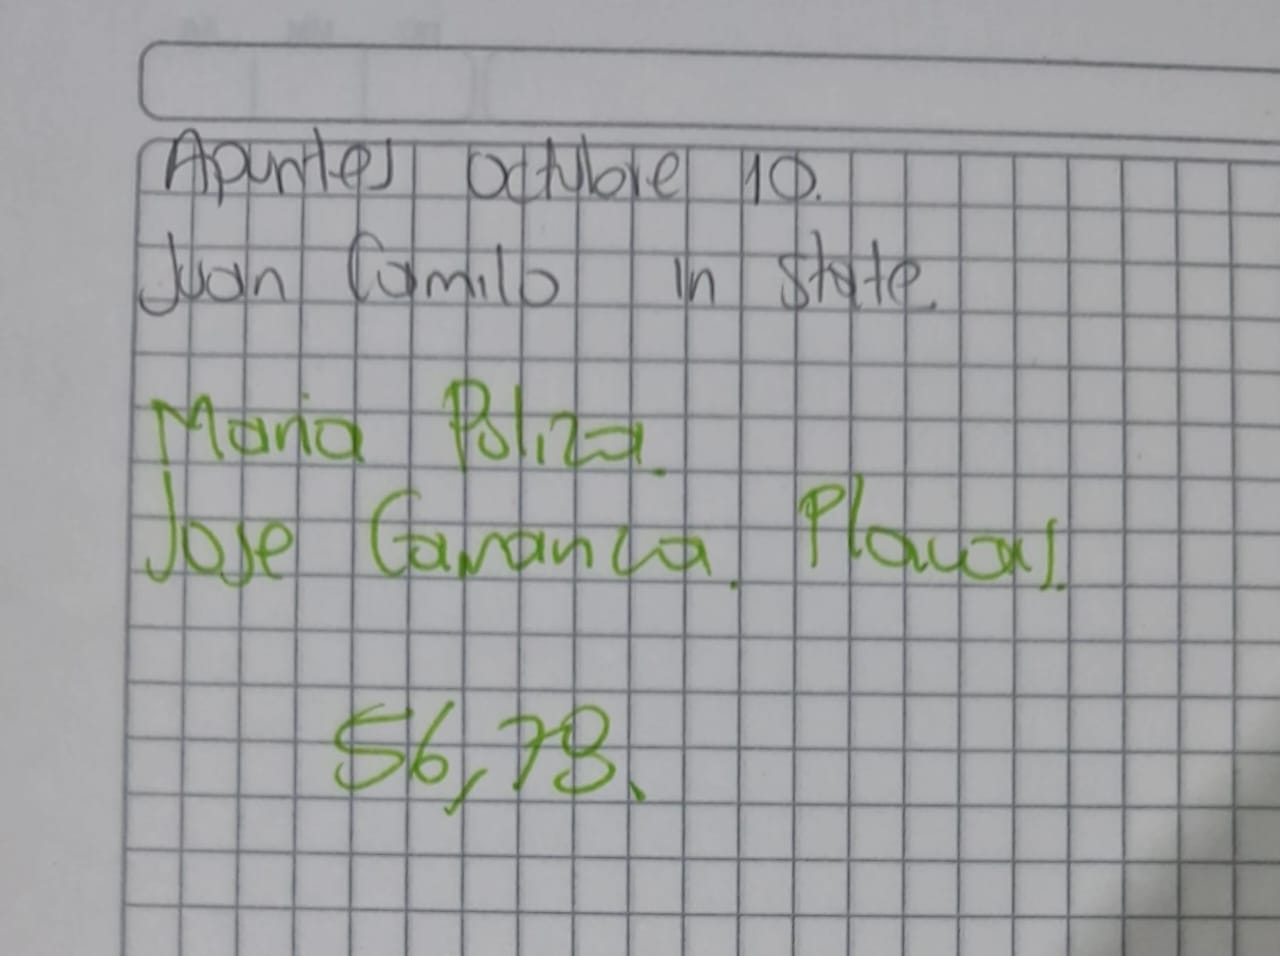 Apuntes octubre 10.
Juan Camilo in state.
Maria Poliza.
Jose Garanza. Playas.
56,78.